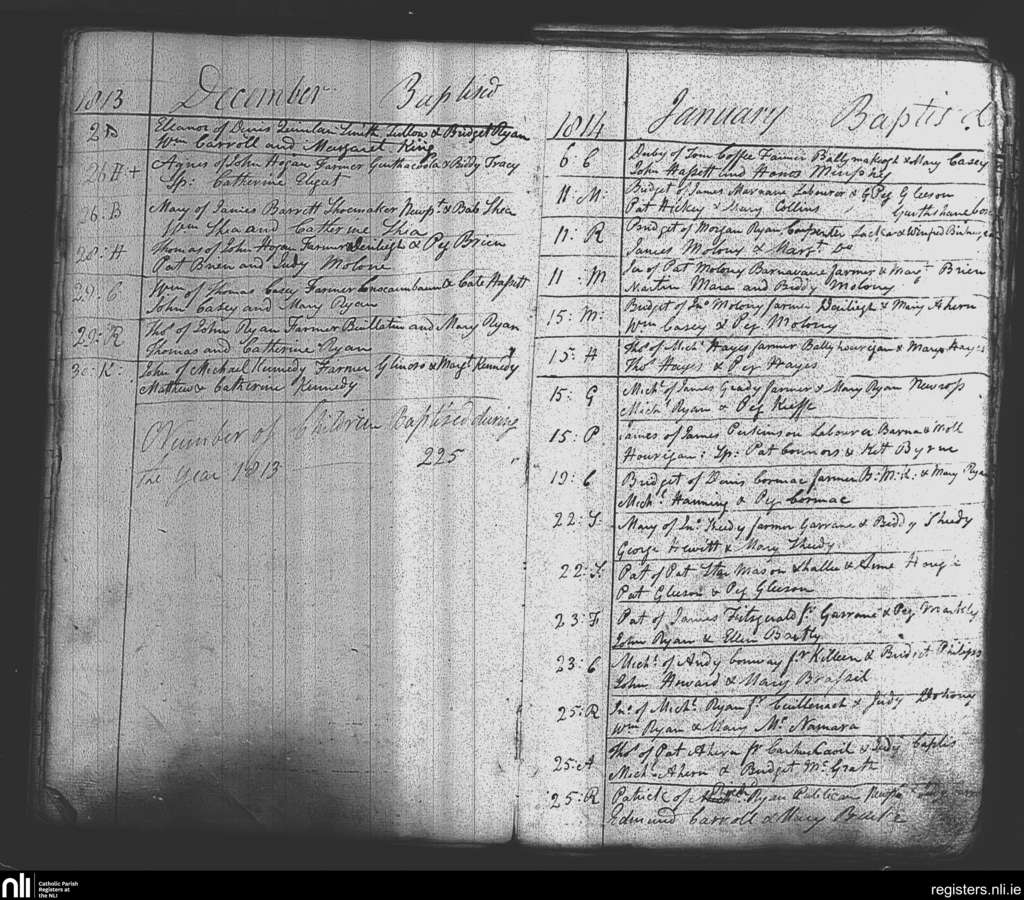 1813 December Baptised
2 B Eleanor of Denis Quinlan Smith Tullow & Bridget Ryan
Wm Carroll and Margaret King
26 H + Agnes of John Hogan Farmer & Biddy Tracy
Sp: Catherine
26: B Mary of James Barrett Shoemaker Newpt & Bab Shea
Wm Shea and Catherine Shea
28: H Thomas of John Hogan Farmer & Peg Brien
Pat Brien and Judy Molone
29: C Wm of Thomas Casey Farmer & Cate Hassett
John Casey and Mary Ryan
29: R Thos of John Ryan Farmer and Mary Ryan
Thomas and Catherine Ryan
30: K: John of Michael Kennedy Farmer & Margt Kennedy
Matthew & Catherine Kennedy
Number of Children Baptised during
the year 1813 225
1814 January Baptis d
6: C Darby of Tom Coffee Farmer & Mary Casey
John Hassett and Honor Murphy
11: M: Bridget of James Labourer & Peg Gleeson
Pat Hickey & Mary Collins
11: R Bridget of Morgan Ryan Carpenter Lacka & Winifred
James Molony & Margt Do
11: M Jn of Pat Molony Barnavane farmer & Margt Brien
Martin Mara and Biddy Molony
15: M: Bridget of Jno Molony farmer & Mary Ahern
Wm Casey & Peg Molony
15: H Thos of Michl Hayes farmer Ballyhourigan & Mary Hayes
Thos Hayes & Peg Hayes
15: G Michl of James Grady farmer & Mary Ryan Newross
Michl Ryan & Peg Keeffe
15: P James of James Perkinson Labourer Barna & Moll
Hourigan: Sp: Pat Connors & Kit Byrne
19: C Bridget of Denis Cormac farmer B: M: K: & Mary Ryan
Michl Hanning & Peg Cormac
22: S: Mary of Jno Sheedy farmer Garrane & Biddy Sheedy
George Hewitt & Mary Sheedy
22: S: Pat of Pat Mason Shallee &
Pat Gleeson & Peg Gleeson
23: F Pat of James Fitzgerald fr Garrane & Peg
John Ryan & Ellen Bartly
23: C Michl of Andy Conway fr Killeen & Bridget Philips
John Howard & Mary Brassil
25: R Jno of Michl Ryan fr & Judy Dohony
Wm Ryan & Mary Mc Namara
25: A Thos of Pat Ahern fr & Judy
Michl Ahern & Bridget Mc Grath
25: R Patrick of Ryan Publican Newpt
Edmund Carroll & Mary
nli Catholic Parish
Registers at
the NLI
registers.nli.ie